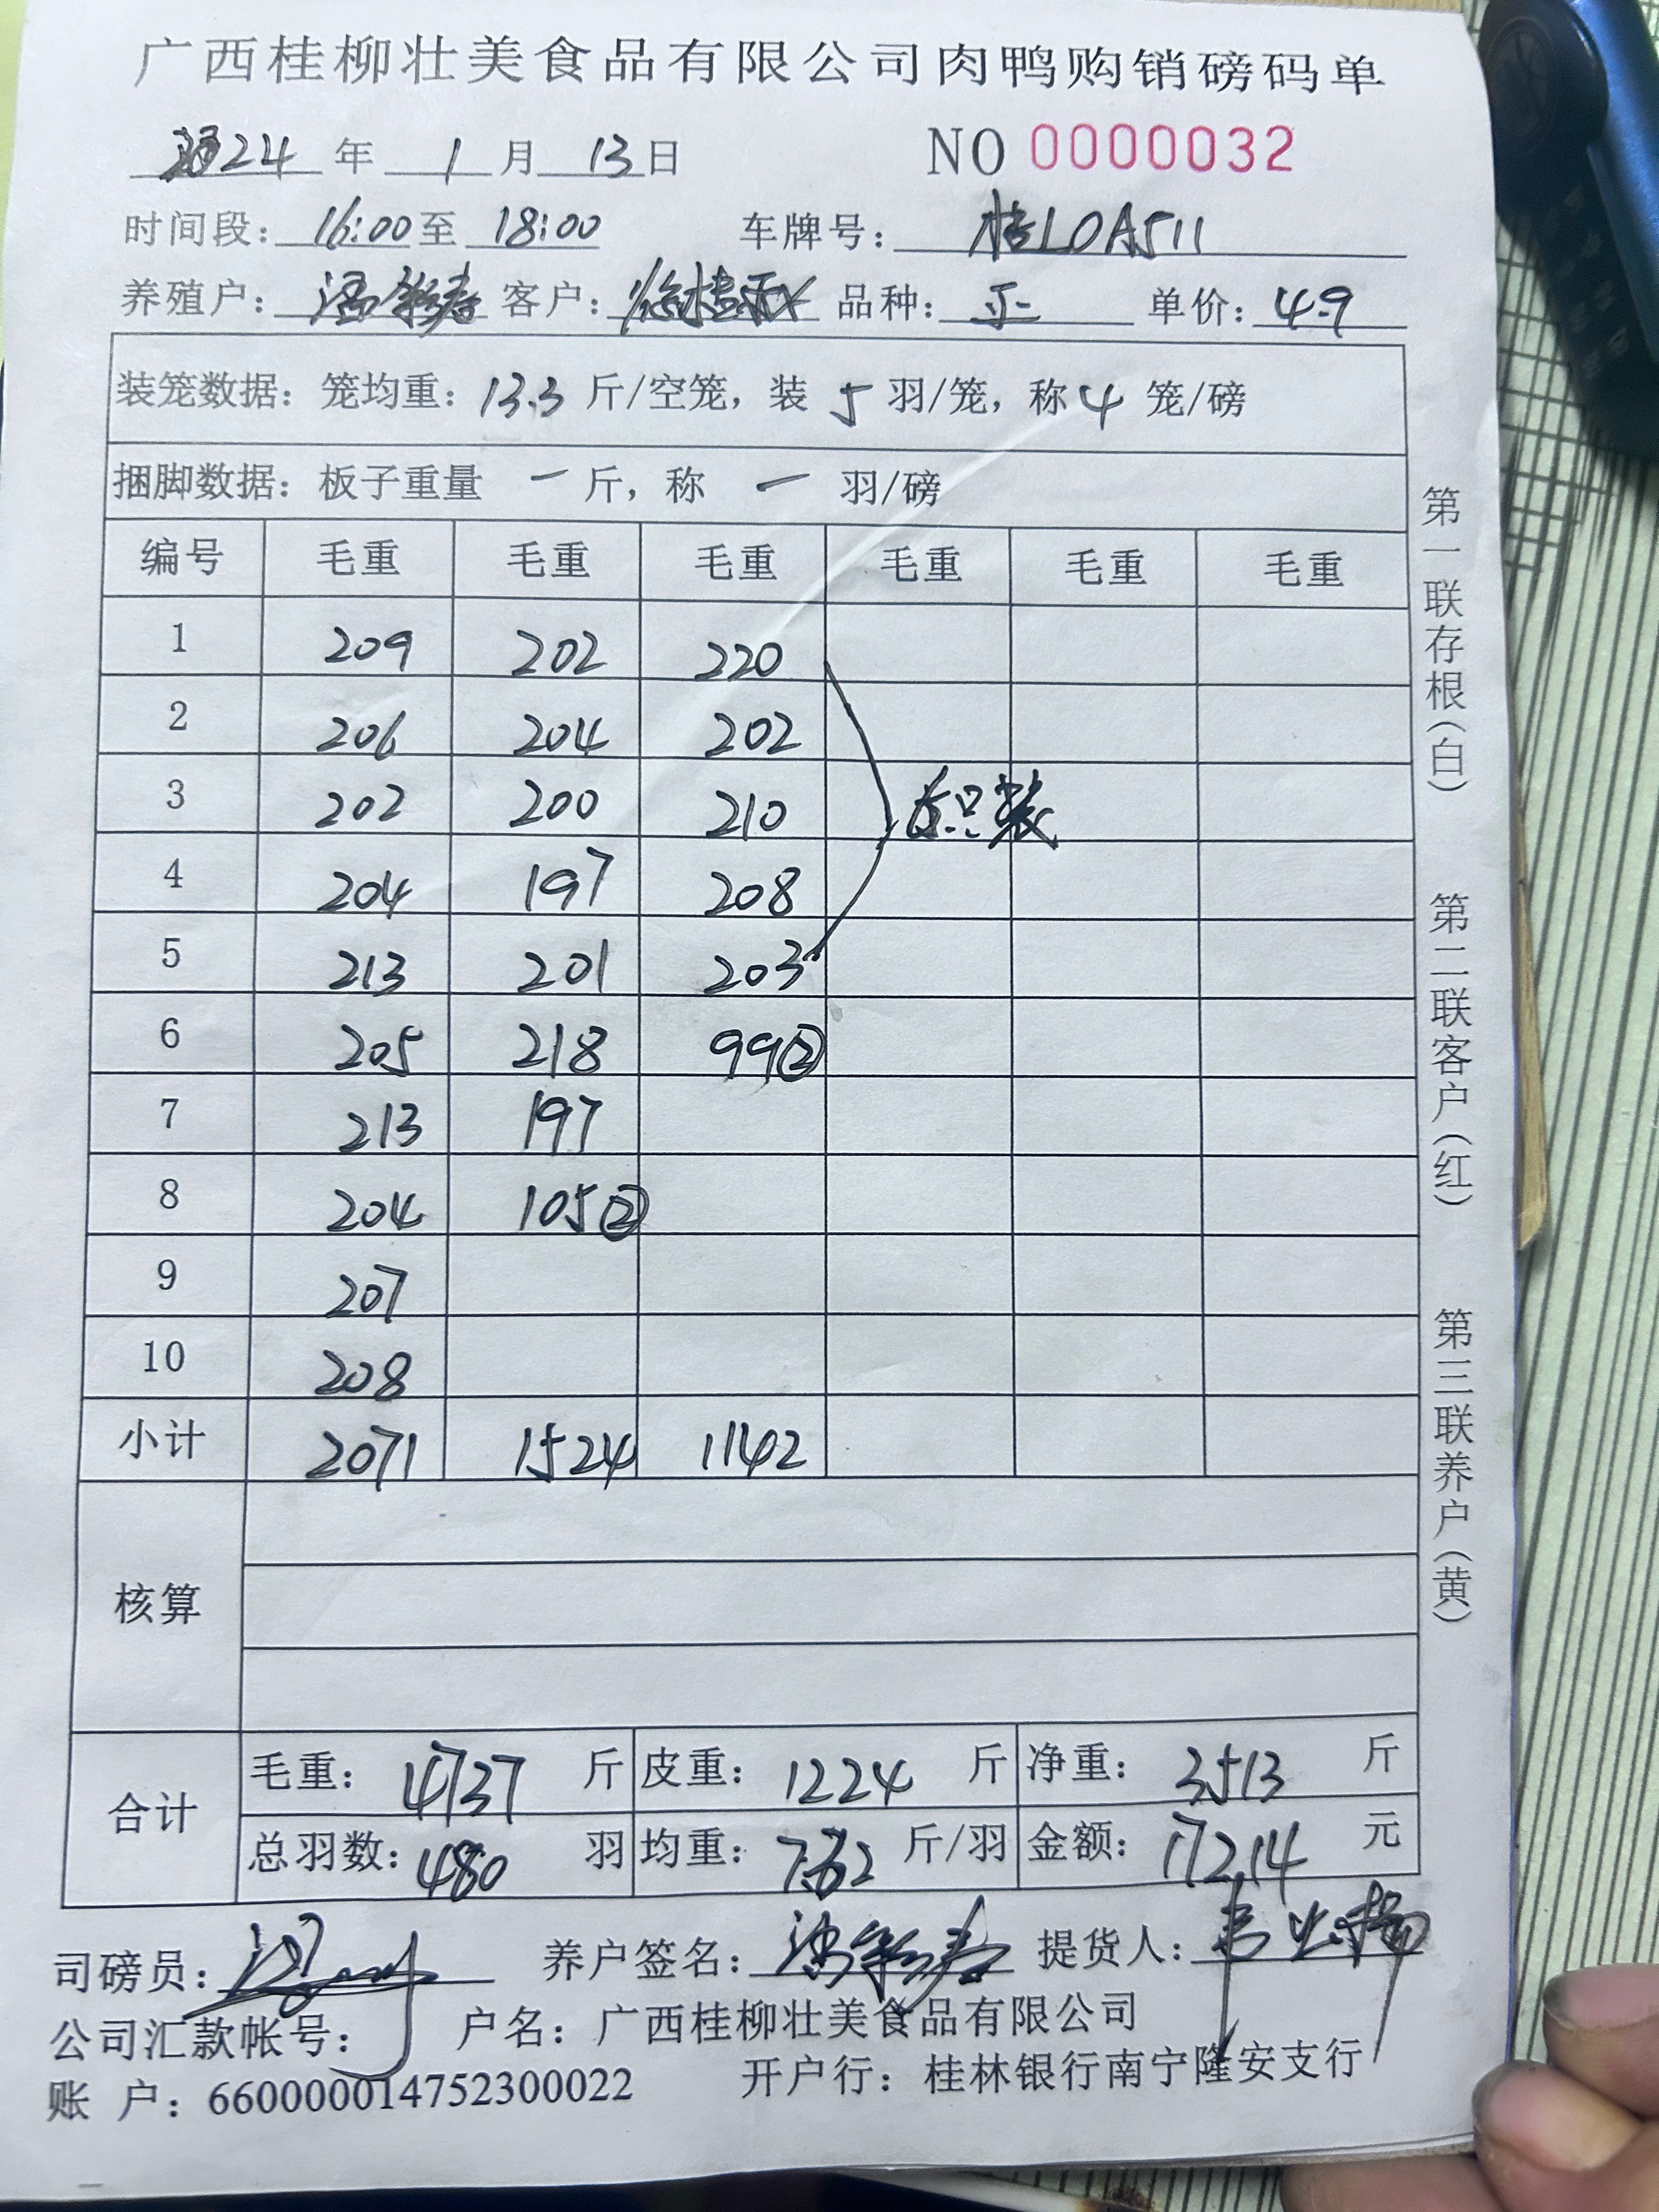 广西桂柳壮美食品有限公司肉鸭购销磅码单
24年 1月 13日 NO 0000032
时间段：16:00至 18:00 车牌号：桂L0A511
养殖户： 客户： 品种： 单价：4.9
装笼数据：笼均重：13.3 斤/空笼，装 5 羽/笼，称 4 笼/磅
捆脚数据：板子重量 一 斤，称 一 羽/磅
编号 毛重 毛重 毛重 毛重 毛重 毛重
1 209 202 220
2 206 204 202
3 202 200 210 只装
4 204 197 208
5 213 201 203
6 205 218 99②
7 213 197
8 204 105②
9 207
10 208
小计 2071 1524 1142
核算
合计
毛重：4737 斤 皮重：1224 斤 净重：3513 斤
总羽数：480 羽 均重：7.32 斤/羽 金额：17214 元
司磅员： 养户签名： 提货人：
公司汇款帐号： 户名：广西桂柳壮美食品有限公司
账 户：660000014752300022 开户行：桂林银行南宁隆安支行
第一联存根(白)
第二联客户(红)
第三联养户(黄)